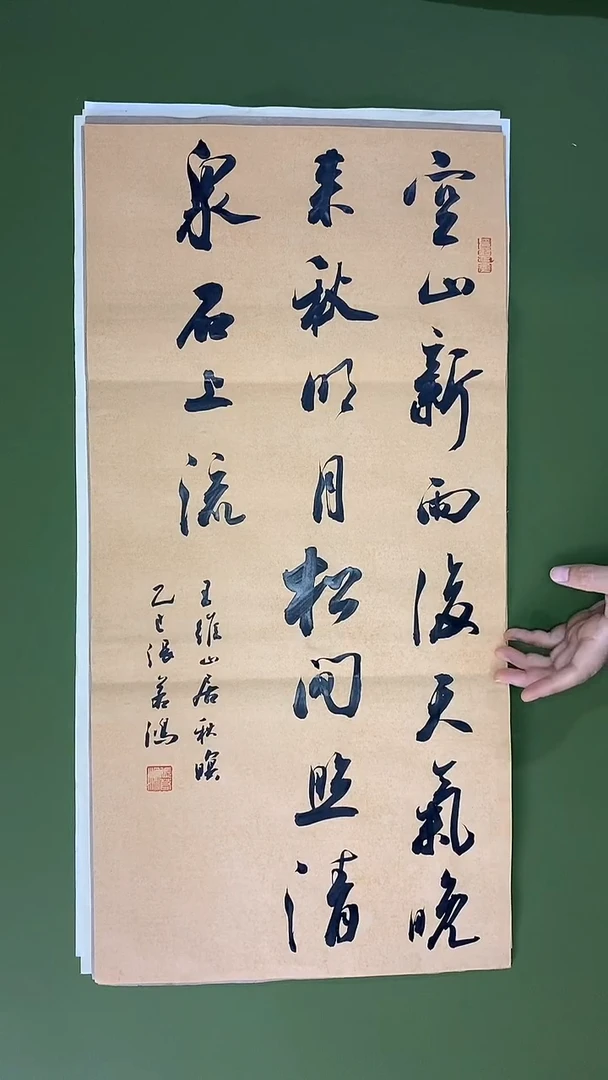 空山新雨後天氣晚
來秋明月松间照清
泉石上流
王維山居秋暝
乙巳張若鴻